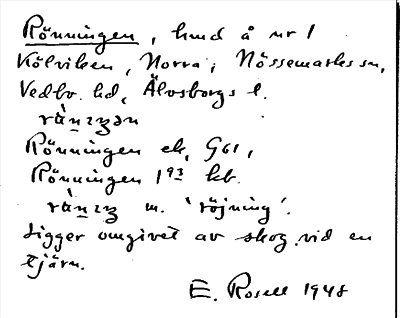 Rönningen, hmd å nr 1
Kölviken, Norra, Nössemarks sn,
Vedbo hd, Älvsborgs l.
Rönningen ek, G61,
Rönningen 1 93 kb.
m. 'röjning'.
Ligger omgivet av skog vid en
tjärn.
E. Rosell 1948